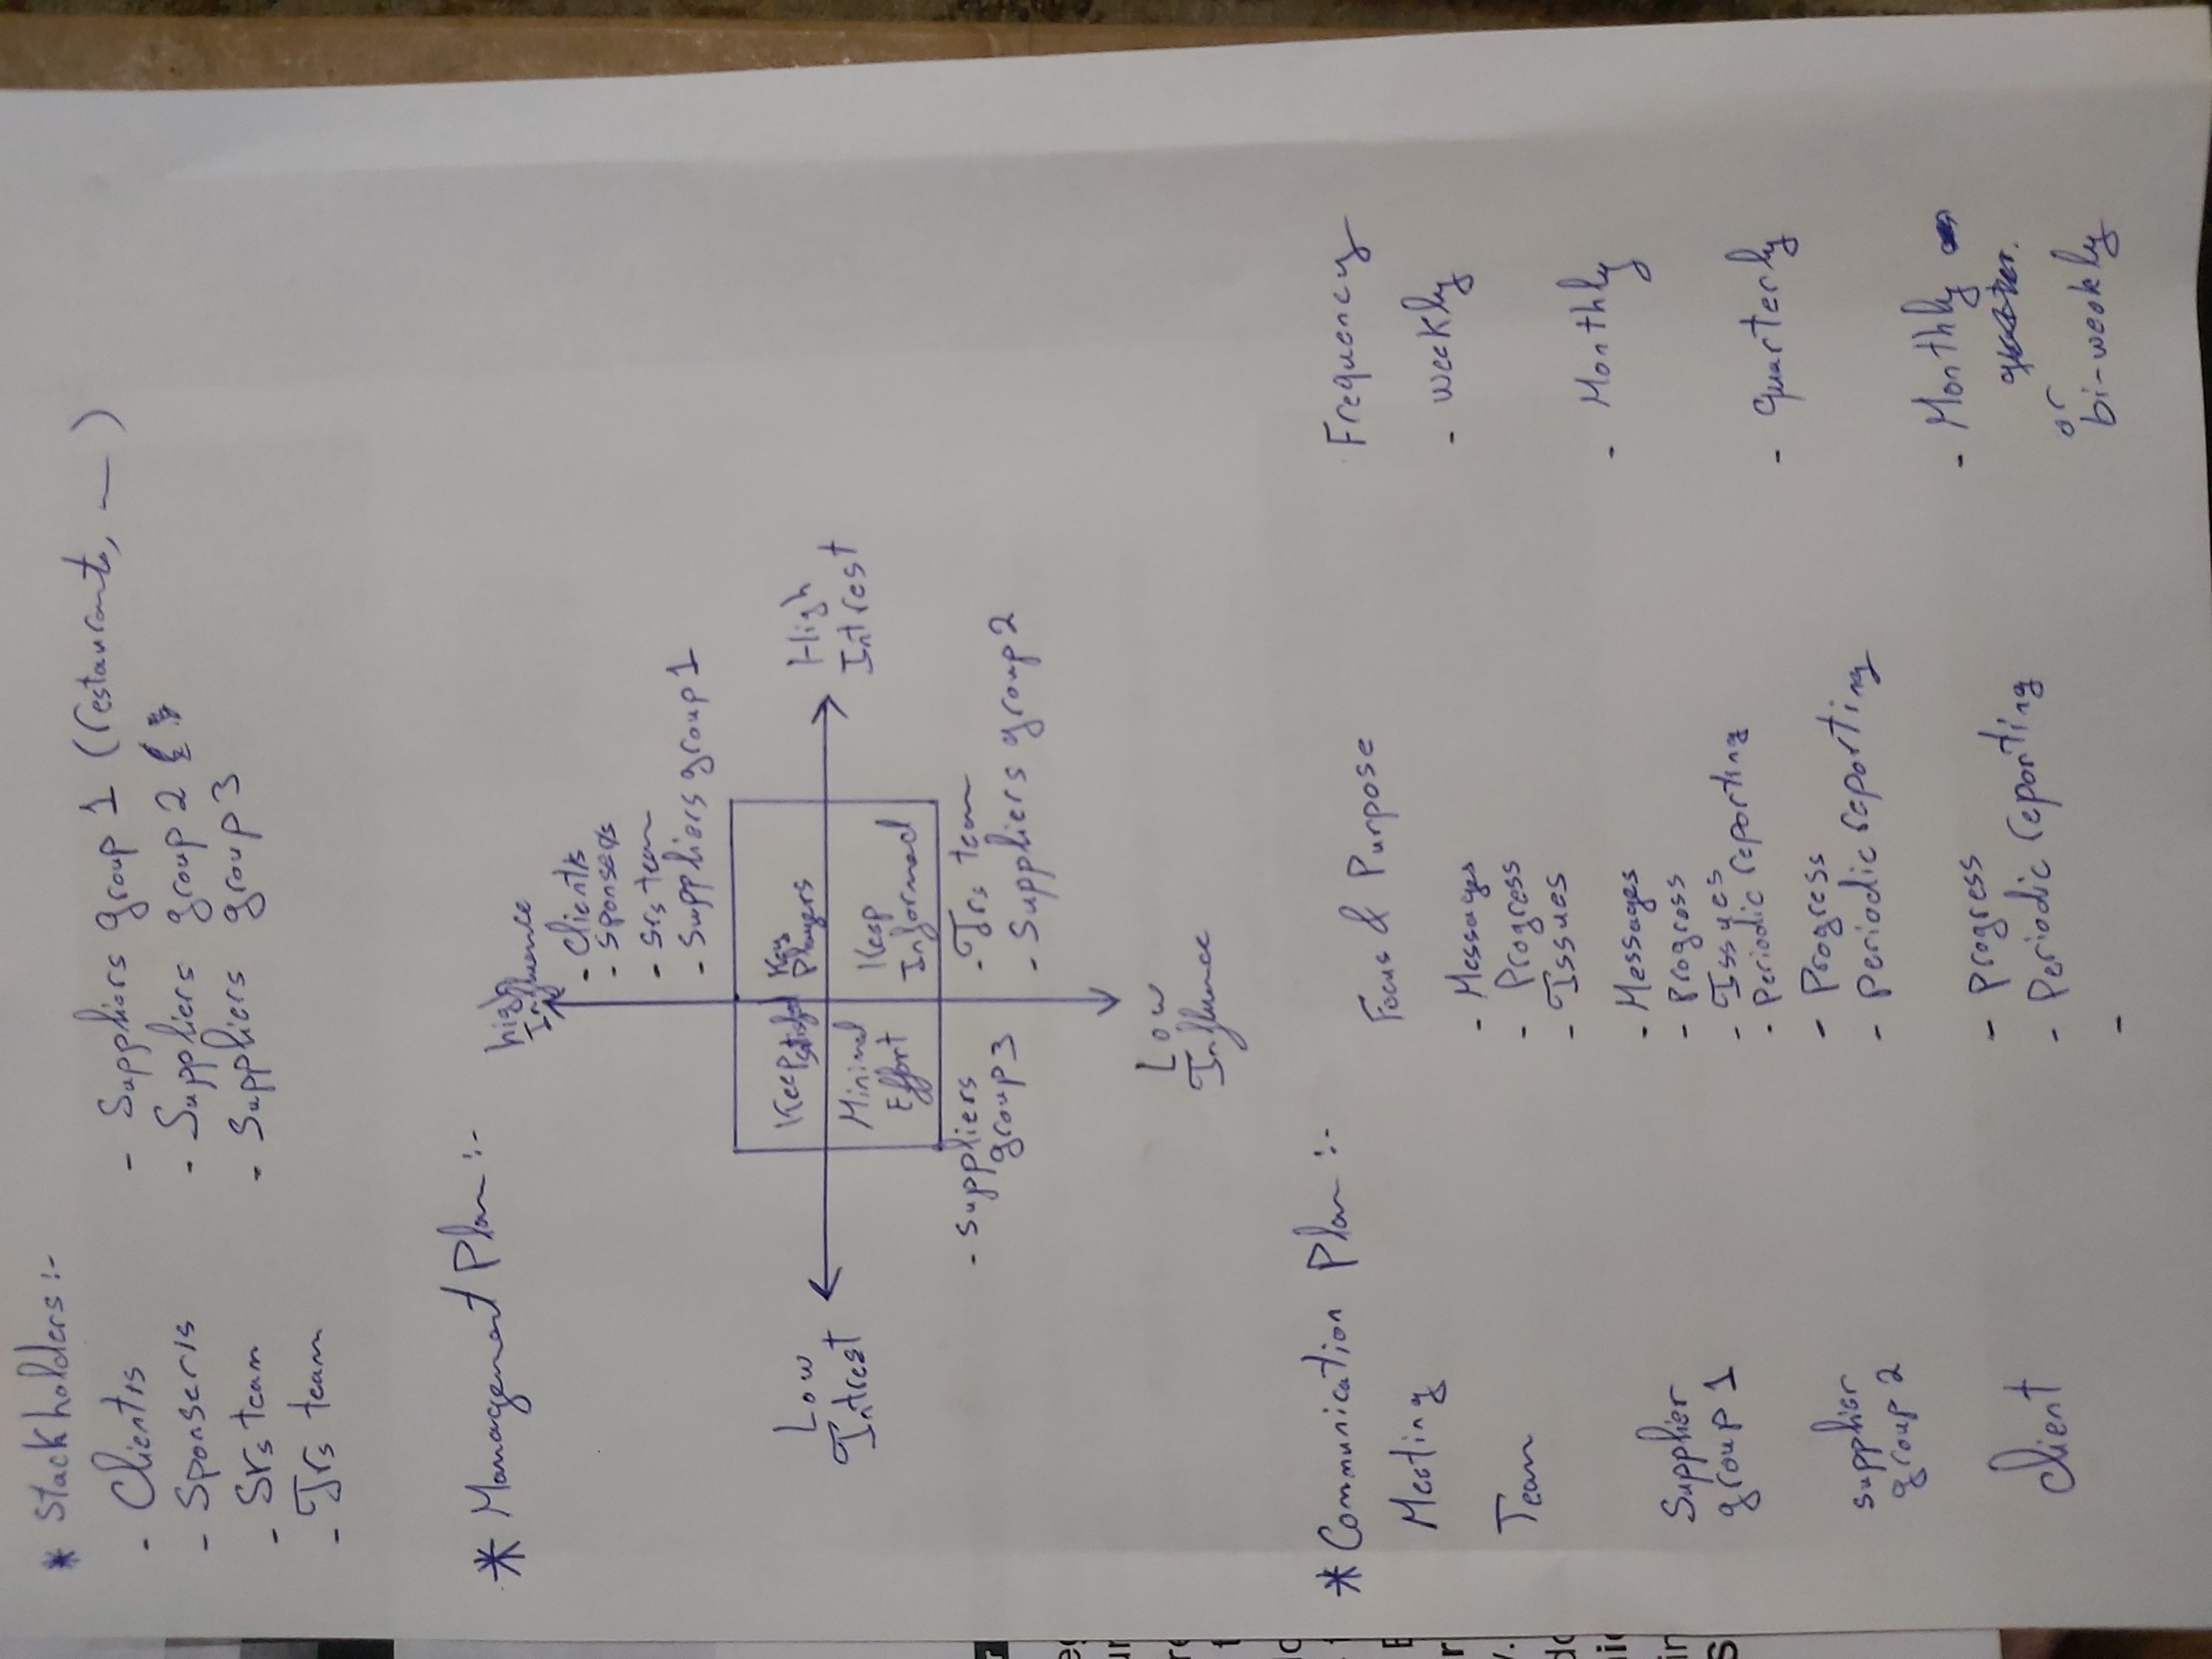 * Stackholders :-
- Client/s
- Sponser/s
- Srs team
- Jrs team
- Suppliers group 1 (restaurants, — )
- Suppliers group 2
- Suppliers group 3
* Management Plan :-
high
Influence
- Client/s
- Sponser/s
- Srs team
- Suppliers group 1
Low
Intrest
Keep satisfied
Key
Players
High
Intrest
Minimal
Effort
Keep
Informed
- Suppliers
group 3
- Jrs team
- Suppliers group 2
Low
Influence
* Communication Plan :-
Meeting
Focus & Purpose
Frequency
Team
- Messages
- Progress
- Issues
- Weekly
Supplier
group 1
- Messages
- Progress
- Issues
- Periodic reporting
- Monthly
Supplier
group 2
- Progress
- Periodic reporting
- Quarterly
Client
- Progress
- Periodic reporting
-
- Monthly
or
bi-weekly